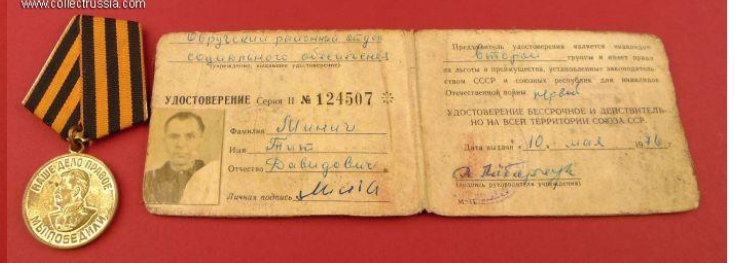 www.collectrussia.com
НАШЕ ДЕЛО ПРАВОЕ
МЫ ПОБЕДИЛИ
Овручский районный отдел
социального обеспечения
(учреждение, выдавшее удостоверение)
УДОСТОВЕРЕНИЕ Серия II № 124507
Фамилия Минич
Имя Тит
Отчество Давидович
Личная подпись
Предъявитель удостоверения является инвалидом
второй группы и имеет право
на льготы и преимущества, установленные законодательст-
вом СССР и союзных республик для инвалидов
Отечественной войны
УДОСТОВЕРЕНИЕ БЕССРОЧНОЕ И ДЕЙСТВИТЕЛЬ-
НО НА ВСЕЙ ТЕРРИТОРИИ СОЮЗА ССР
Дата выдачи „10„ мая 1976 г.
(подпись руководителя учреждения)